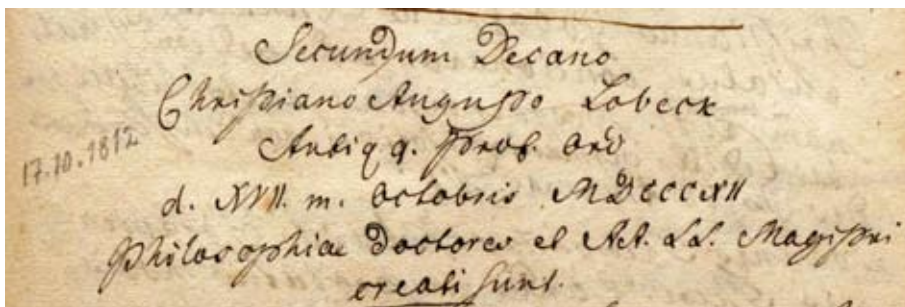 Secundum Decano
Christiano Augusto Lobeck
Antiqq. Prof. Ord
17.10.1812
d. XVII. m. Octobris MDCCCXII
Philosophiae Doctores et AA. LL. Magistri
creati sunt.